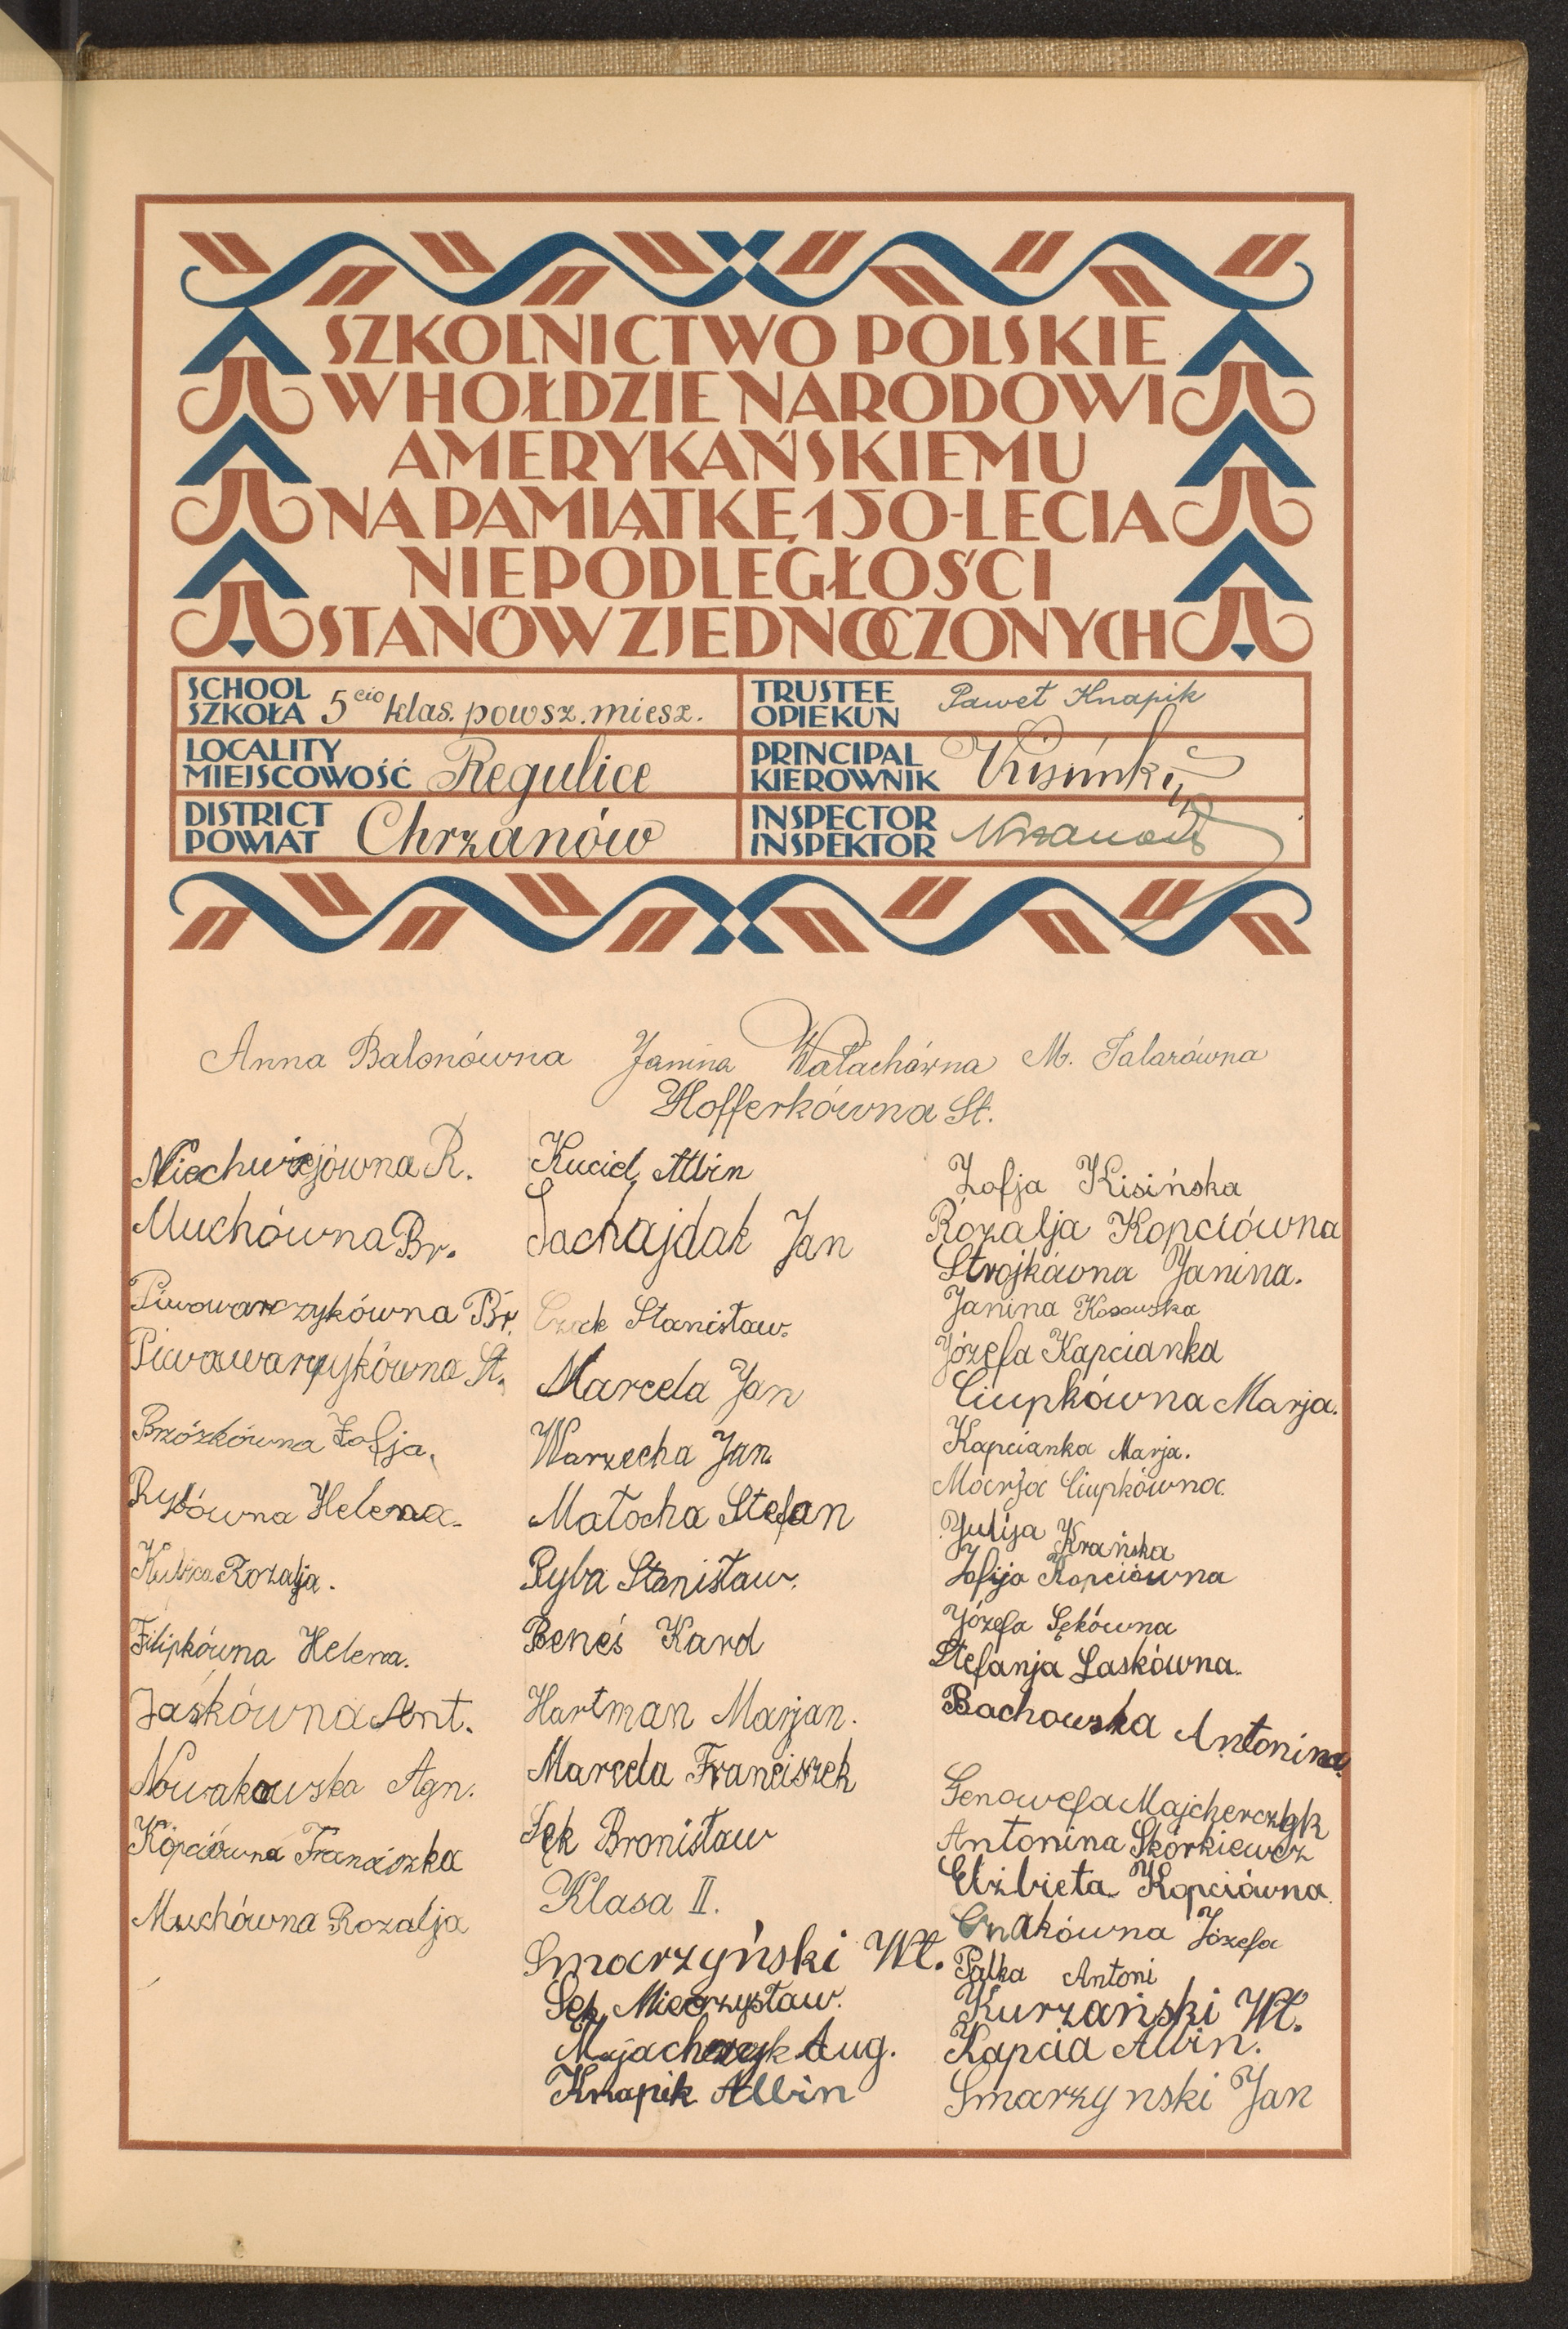 SZKOLNICTWO POLSKIE
W HOŁDZIE NARODOWI
AMERYKAŃSKIEMU
NA PAMIĄTKĘ 150-LECIA
NIEPODLEGŁOŚCI
STANÓW ZJEDNOCZONYCH
SCHOOL
SZKOŁA 5cio klas. powsz. miesz.
LOCALITY
MIEJSCOWOŚĆ Regulice
DISTRICT
POWIAT Chrzanów
TRUSTEE
OPIEKUN Paweł Knapik
PRINCIPAL
KIEROWNIK
INSPECTOR
INSPEKTOR
Anna Balonówna Janina Wałachówna M. Talarówna
Hofferkówna St.
Niechwiejówna R.
Muchówna Br.
Piwowarczykówna Br.
Piwowarczykówna St.
Brózkówna Zofja.
Rybówna Helena.
Kubica Rozalja.
Filipkówna Helena.
Jaśkówna Ant.
Nowakowska Agn.
Kopciówna Franciszka
Muchówna Rozalja
Kuciel Albin
Sachajdak Jan
Stanisław.
Marcela Jan
Warzecha Jan
Matocha Stefan
Ryba Stanisław.
Beneś Karol
Hartman Marjan.
Marcela Franciszek
Sęk Bronisław
Klasa II.
Smarzyński Wł.
Sęk Mieczysław.
Aug.
Knapik Albin
Zofja Kisińska
Rozalja Kopciówna
Strojkówna Janina.
Janina Kossowska
Józefa Kapcianka
Ciupkówna Marja.
Kapcianka Marja.
Marja Ciupkówna
Julija Krańska
Zofija Kopciówna
Józefa Sękówna
Stefanja Laskówna.
Bachowska Antonina.
Genowefa Majcherczyk
Antonina Skórkiewicz
Elżbieta Kopciówna
Józefa
Pałka Antoni
Kurzański Wł.
Kapcia Albin.
Smarzynski Jan